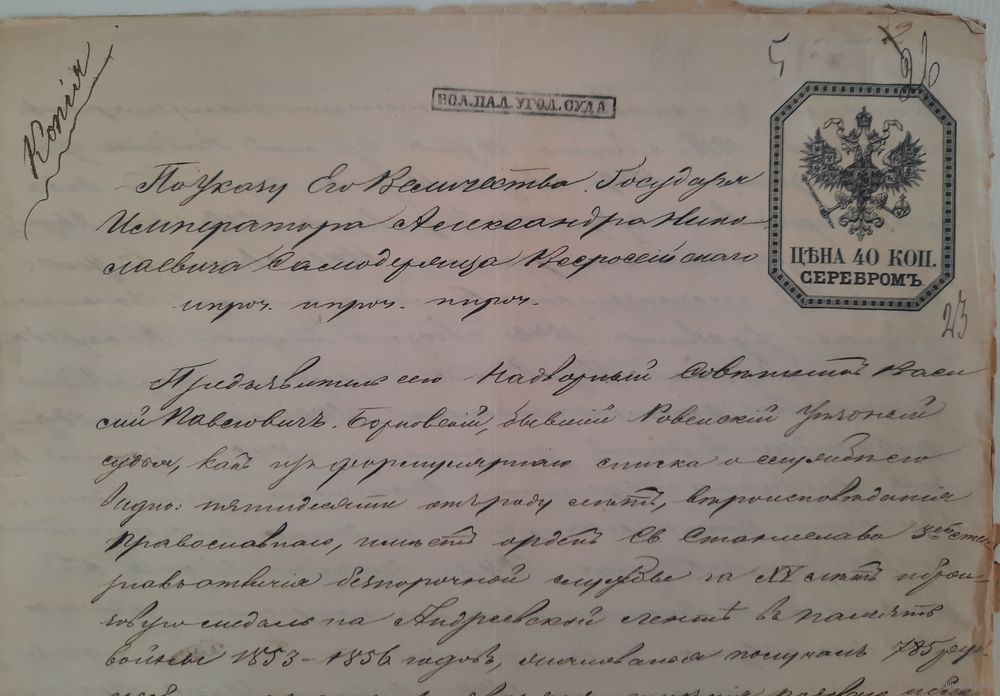 Копія
5
26
ВОЛ.ПАЛ.УГОЛ.СУДА
ЦѢНА 40 КОП.
СЕРЕБРОМЪ.
23
По Указу Его Величества Государя
Императора Александра Нико-
лаевича Самодержца Всеросійскаго
ипроч. ипроч. ипроч.
Предъявитель сего Надворный Совѣтникъ Васи
лій Павловичъ Борковскій, бывшій Ровенскій Уѣздный
судья, какъ изъ формулярнаго списка о службѣ его
видно: пятидесяти отъ роду лѣтъ, вѣроисповѣданія
православнаго, имѣетъ орденъ Св. Станислава 3ей степ
знакъ отличія безпорочной службы за XV лѣтъ и брон-
зовую медаль на Андреевской лентѣ въ память
войны 1853-1856 годовъ, жалованья получалъ 785 руб.